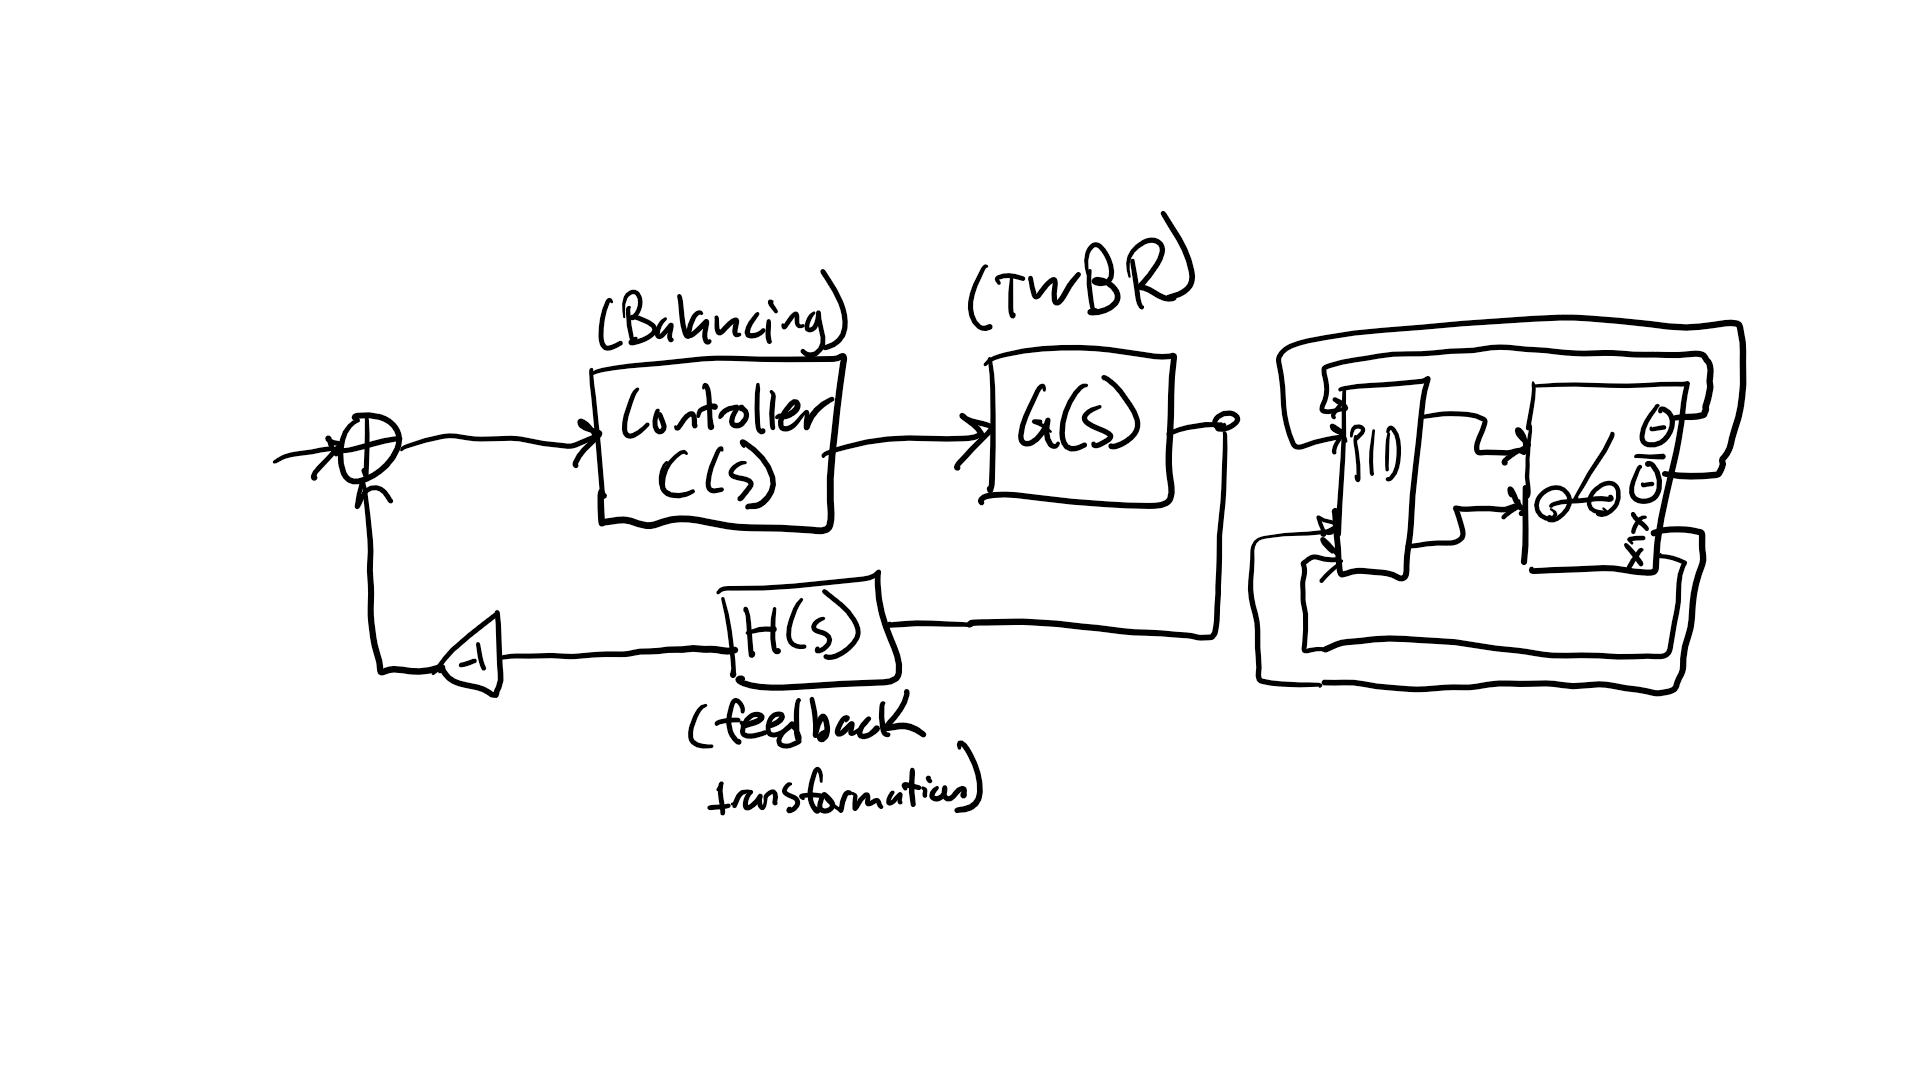 (Balancing)
Controller
C(s)
(TWBR)
G(s)
-1
H(s)
(feedback
transformation)
PID
θ
θ̅
x
x̅